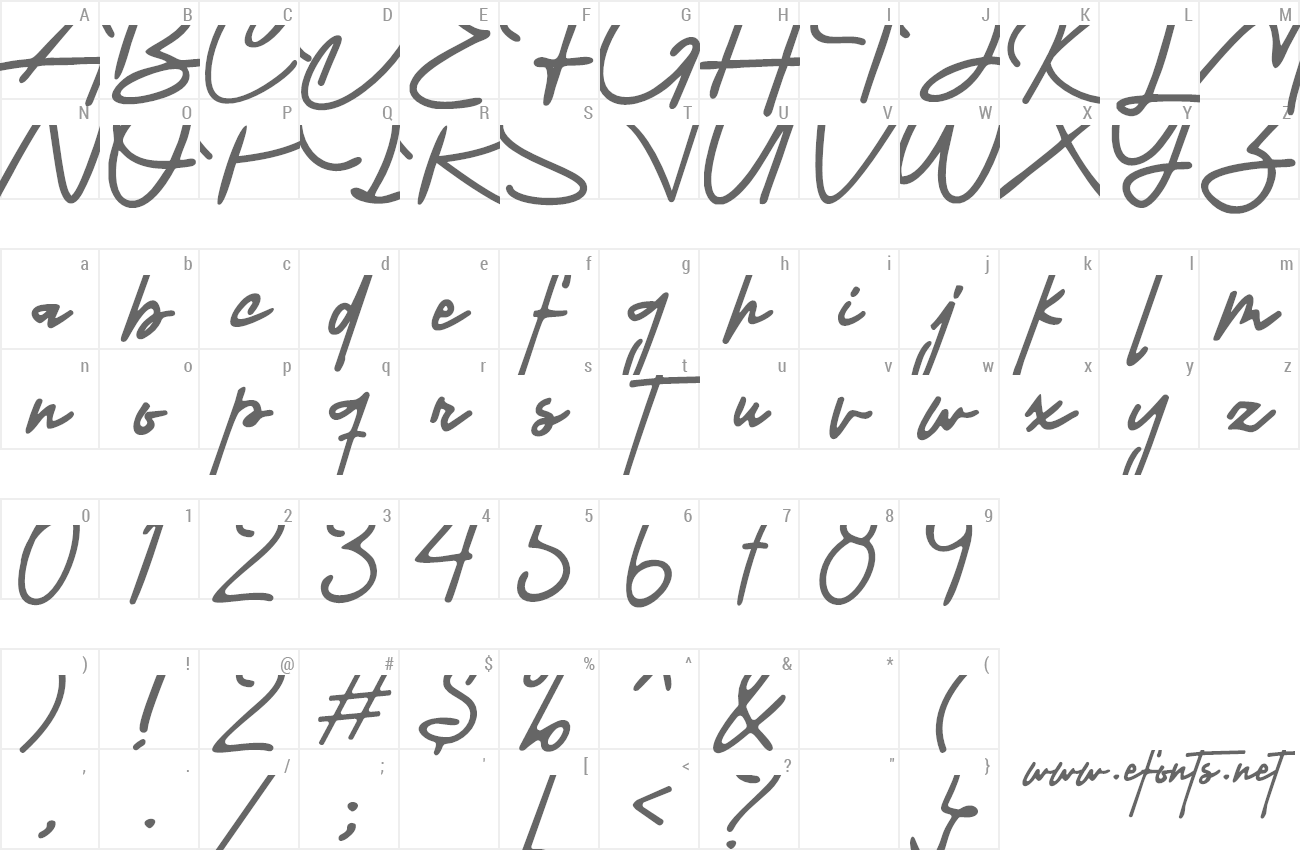 A B C D E F G H I J K L M
A B C D E F G H I J K L M
N O P Q R S T U V W X Y Z
N O P Q R S T U V W X Y Z
a b c d e f g h i j k l m
a b c d e f g h i j k l m
n o p q r s t u v w x y z
n o p q r s t u v w x y z
0 1 2 3 4 5 6 7 8 9
0 1 2 3 4 5 6 7 8 9
) ! @ # $ % ^ & * (
) ! 2 # $ % ^ & (
, . / ; ' [ < ? " }
, . / ; [ < ? }
www.efonts.net